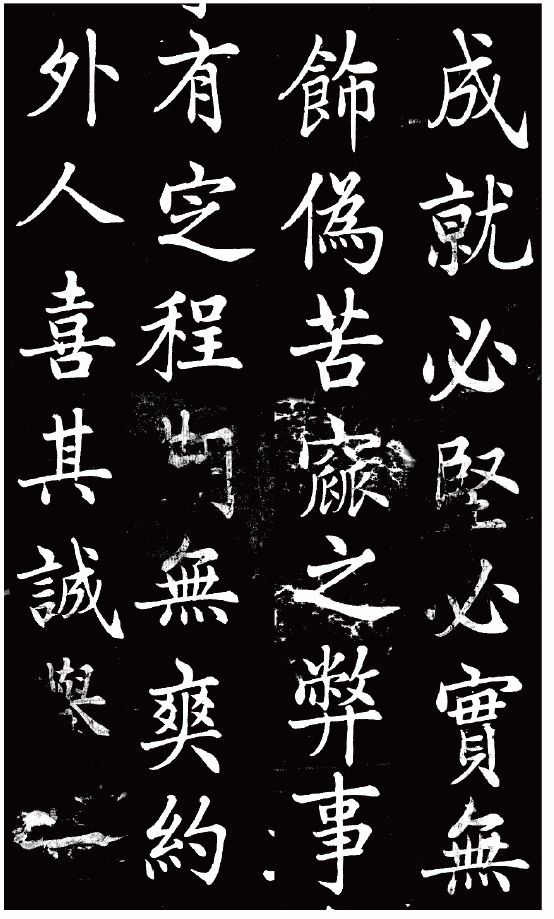 成就必堅必實無
飾偽苦窳之弊事
有定程無爽約
外人喜其誠